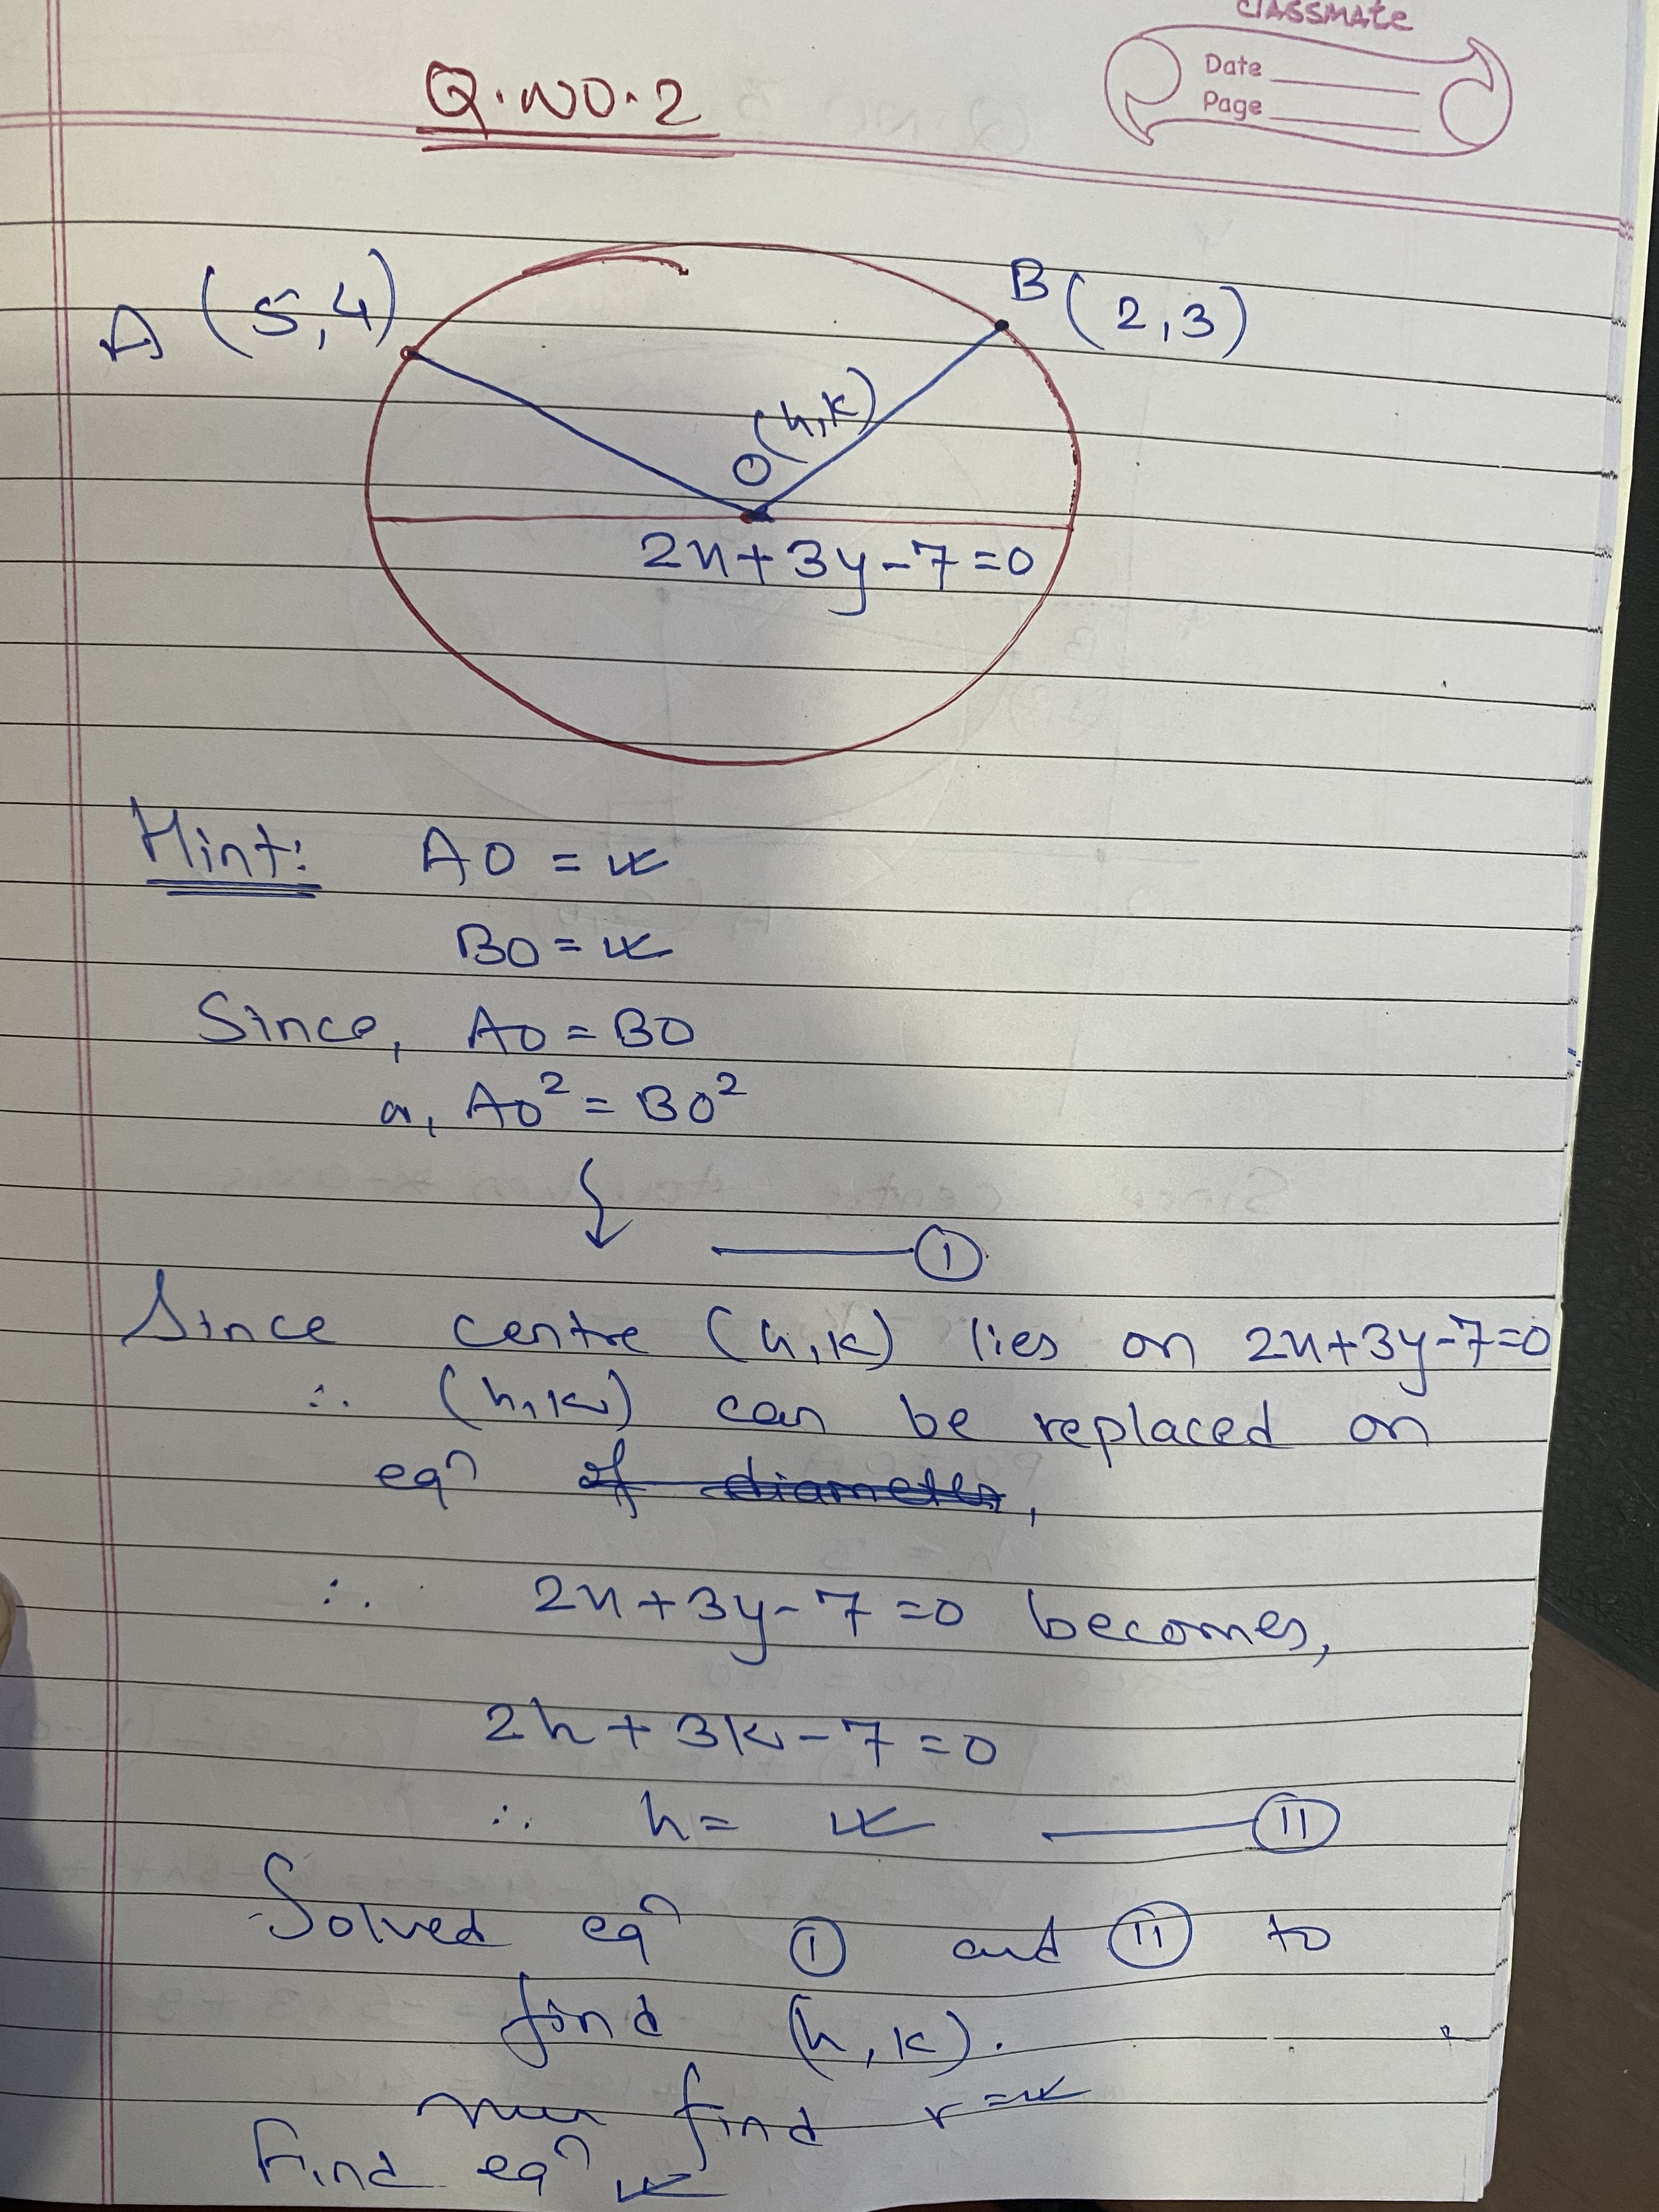 classmate
Date
Page
Q.NO.2
A (5,4)
B (2,3)
O (h,k)
2x+3y-7=0
Hint: AO =
BO =
Since, AO = BO
or, AO² = BO²
①
Since centre (h,k) lies on 2x+3y-7=0
∴ (h,k) can be replaced on
eqⁿ of diameter,
∴ 2x+3y-7=0 becomes,
2h+3k-7=0
∴ h= ⑪
Solved eqⁿ ① and ⑪ to
find (h,k).
find r=
Find eqⁿ